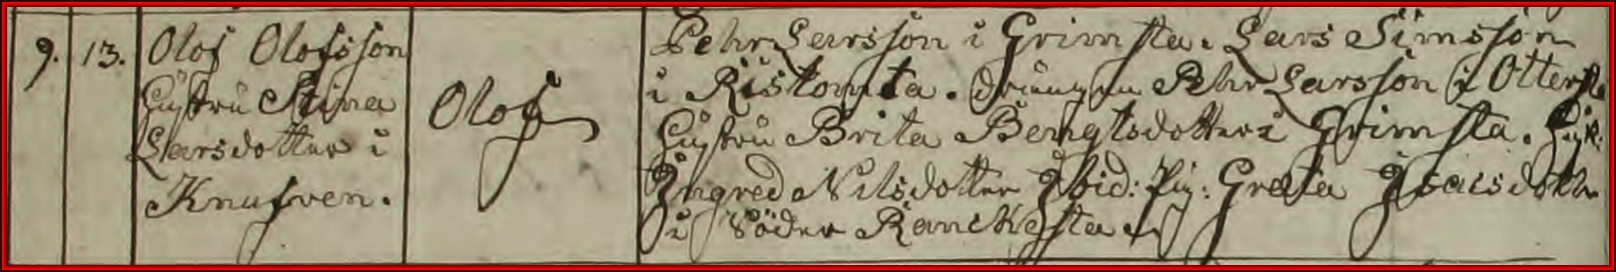 9. 13. Olof Olofsson
Hustru Stina
Larsdotter i
Knufven.
Olof
Pehr Larsson i Grimsta. Lars Simsson
i Ristomta. Drängen Pehr Larsson i Ottersta
Hustru Brita Bengtsdotter i Grimsta. Hust:
Ingred Nilsdotter Ibid: Pig: Greta Isacsdotter
i Söder Ranckesta.